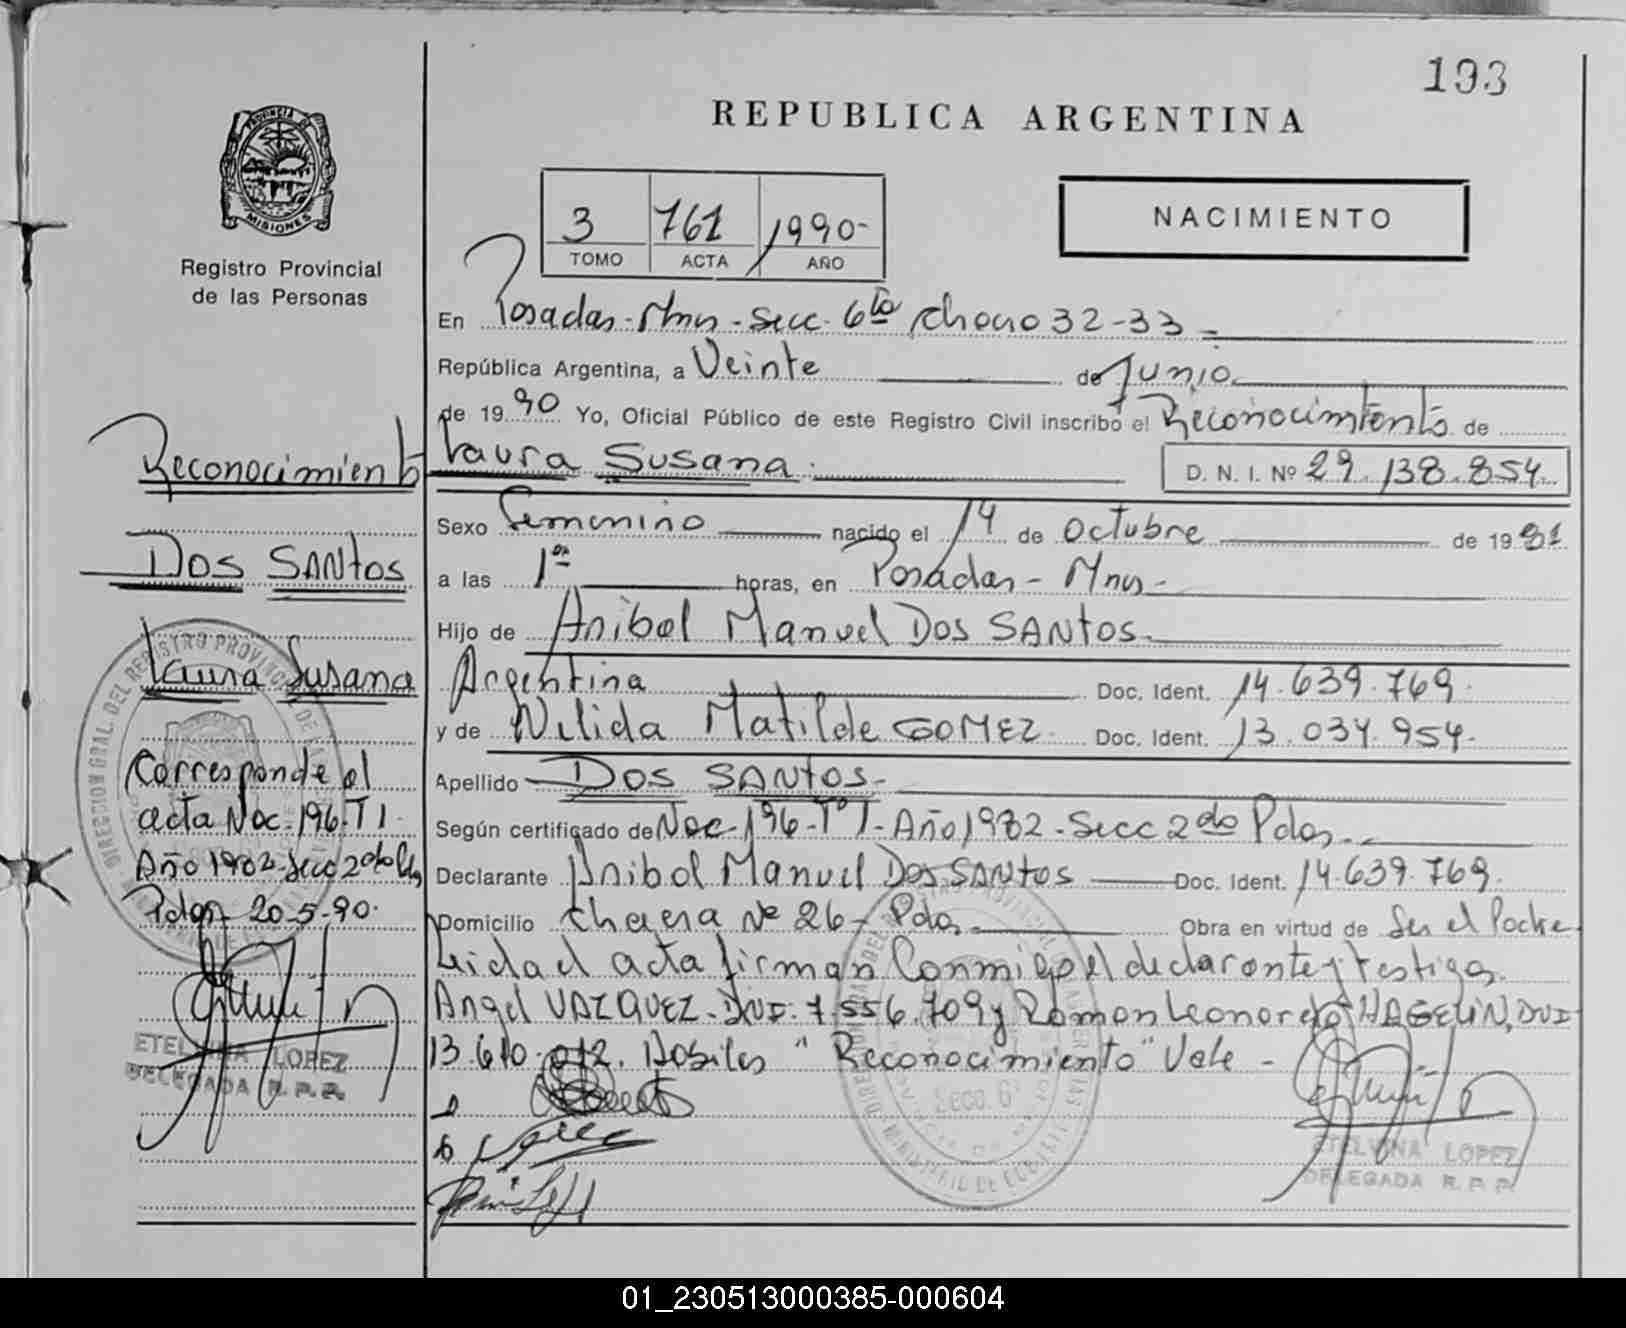 193
REPUBLICA ARGENTINA
PROVINCIA DE
MISIONES
Registro Provincial
de las Personas
3 761 1990-
TOMO ACTA AÑO
NACIMIENTO
En Posadas-Mnes-Secc. 6ta Chacra 32-33
República Argentina, a Veinte de Junio
de 1990 Yo, Oficial Público de este Registro Civil inscribo el Reconocimiento de
Laura Susana. D. N. I. Nº 29.138.854.
Sexo Femenino nacido el 14 de octubre de 1981
a las 1ra horas, en Posadas - Mnes-
Hijo de Anibal Manuel Dos SANtos.
Argentina Doc. Ident. 14.639.769.
y de Nelida Matilde GOMEZ. Doc. Ident. 13.034.954.
Apellido Dos SANtos.
Según certificado de Nac-196-Tº1-Año 1982-Secc 2da Pdas.
Declarante Anibal Manuel Dos SANtos Doc. Ident. 14.639.769.
Domicilio Chacra Nº 26-Pdas. Obra en virtud de Ser el Padre
Leida el acta firman Conmigo el declarante y testigos
Angel VAZQUEZ. DNI. 7.556.709 y Ramon Leonardo HAGELIN, DNI
13.610.012. "Reconocimiento" Vale -
ETELVINA LOPEZ
DELEGADA R. P. P.
Secc. 6ª
Reconocimiento
Dos SANtos
Laura Susana
Corresponde al
acta Nac-196-T1
Año 1982-Secc 2da
Pdas 20-5-90.
ETELVINA LOPEZ
DELEGADA R. P. P.
01_230513000385-000604